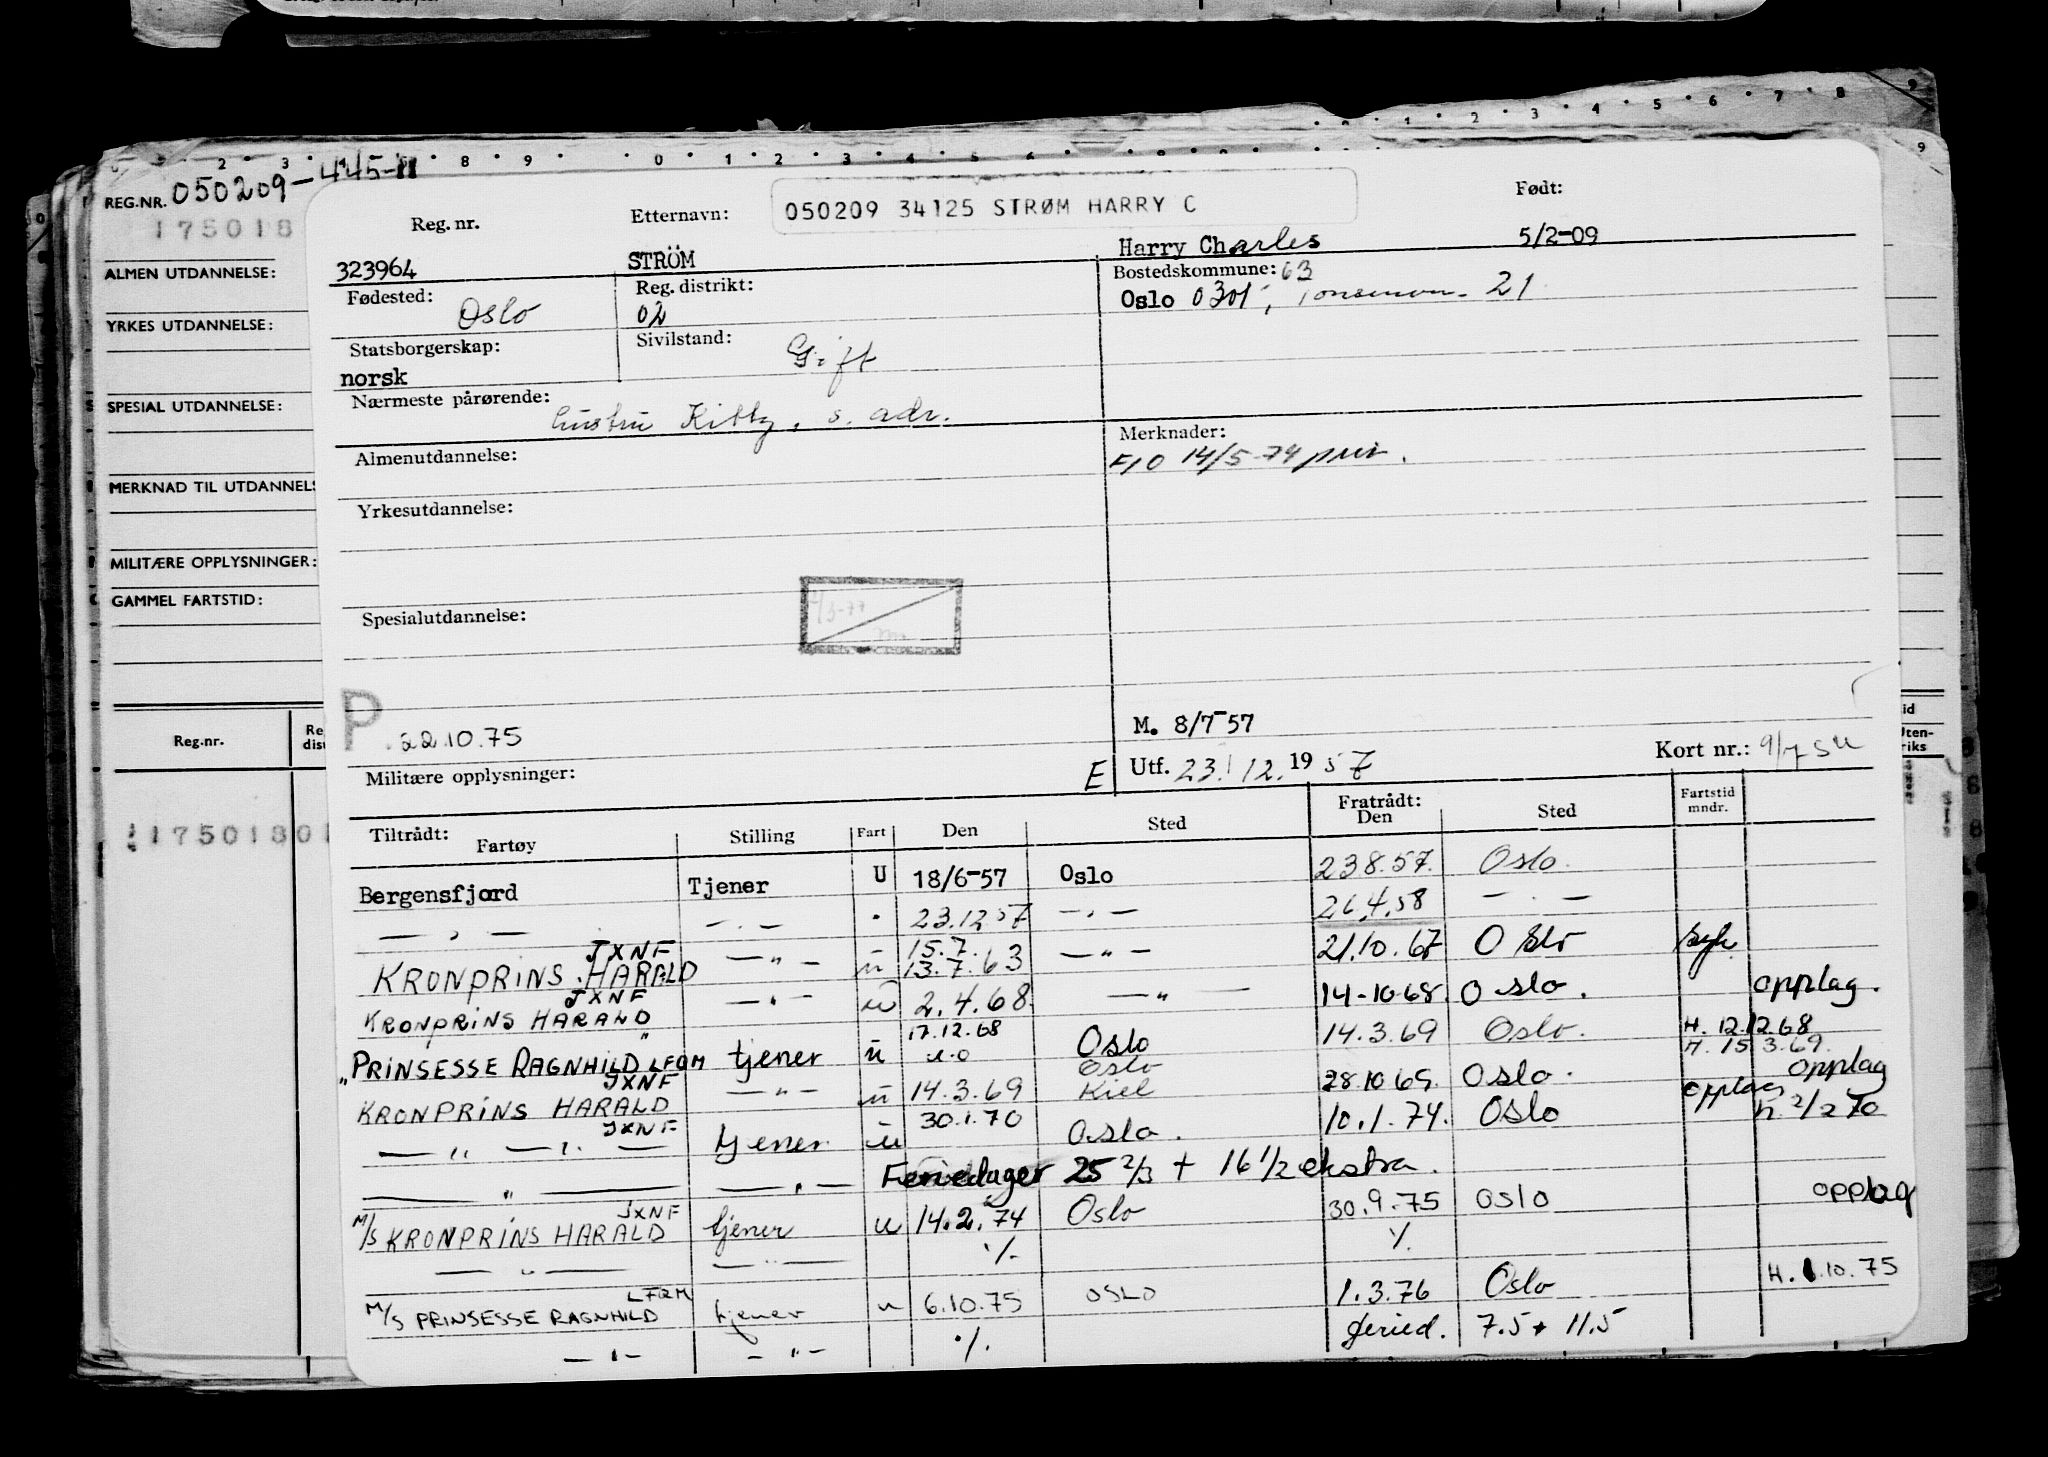 REG.NR. 050209-445-11
175018
ALMEN UTDANNELSE:
YRKES UTDANNELSE:
SPESIAL UTDANNELSE:
MERKNAD TIL UTDANNELS
MILITÆRE OPPLYSNINGER:
GAMMEL FARTSTID:
Reg.nr.
050209 34125 STRØM HARRY C
Reg. nr. Etternavn: Født:
323964 STRÖM Harry Charles 5/2-09
Fødested: Oslo Reg. distrikt: 02 Bostedskommune: 63
Oslo 0301, 21
Statsborgerskap: norsk Sivilstand: Gift
Nærmeste pårørende: hustru Kitty, s. adr.
Almenutdannelse: Merknader:
F/O 14/5-74 priv.
Yrkesutdannelse:
Spesialutdannelse:
P 22.10.75 M. 8/7-57
Militære opplysninger: E Utf. 23/12. 1957 Kort nr.:
Tiltrådt: Fartøy Stilling Fart Den Sted Fratrådt: Den Sted Fartstid mndr.
Bergensfjord Tjener U 18/6-57 Oslo 23.8.57. Oslo.
— " — — " — " 23.12.57 — " — 26.4.58 — " —
JXNF
KRONPRINS HARALD — " — u 15.7. 13.7.63 — " — 21.10.67 Oslo syk
JXNF
KRONPRINS HARALD — " — u 2.4.68. — " — 14-10-68. Oslo. opplag.
" PRINSESSE RAGNHILD LFQM tjener u 17.12.68 Oslo 14.3.69 Oslo. H. 12.12.68
H. 15 3.69.
JXNF
KRONPRINS HARALD — " — u 14.3.69 Oslo Kiel 28.10.69. Oslo. opplag
JXNF
— " — " — tjener u 30.1.70 Oslo. 10.1.74. Oslo opplag h. 2/2 70
— " — — " — Feriedager 25 2/3 + 16 1/2 ekstra.
JXNF
M/S KRONPRINS HARALD tjener u 14.2.74 Oslo 30.9.75 OSLO opplag
— " — — " — ./. ./.
LFQM
M/S PRINSESSE RAGNHILD tjener u 6.10.75 OSLO 1.3.76 Oslo H. 1.10.75
— " — — " — ./. feried. 7.5 + 11.5